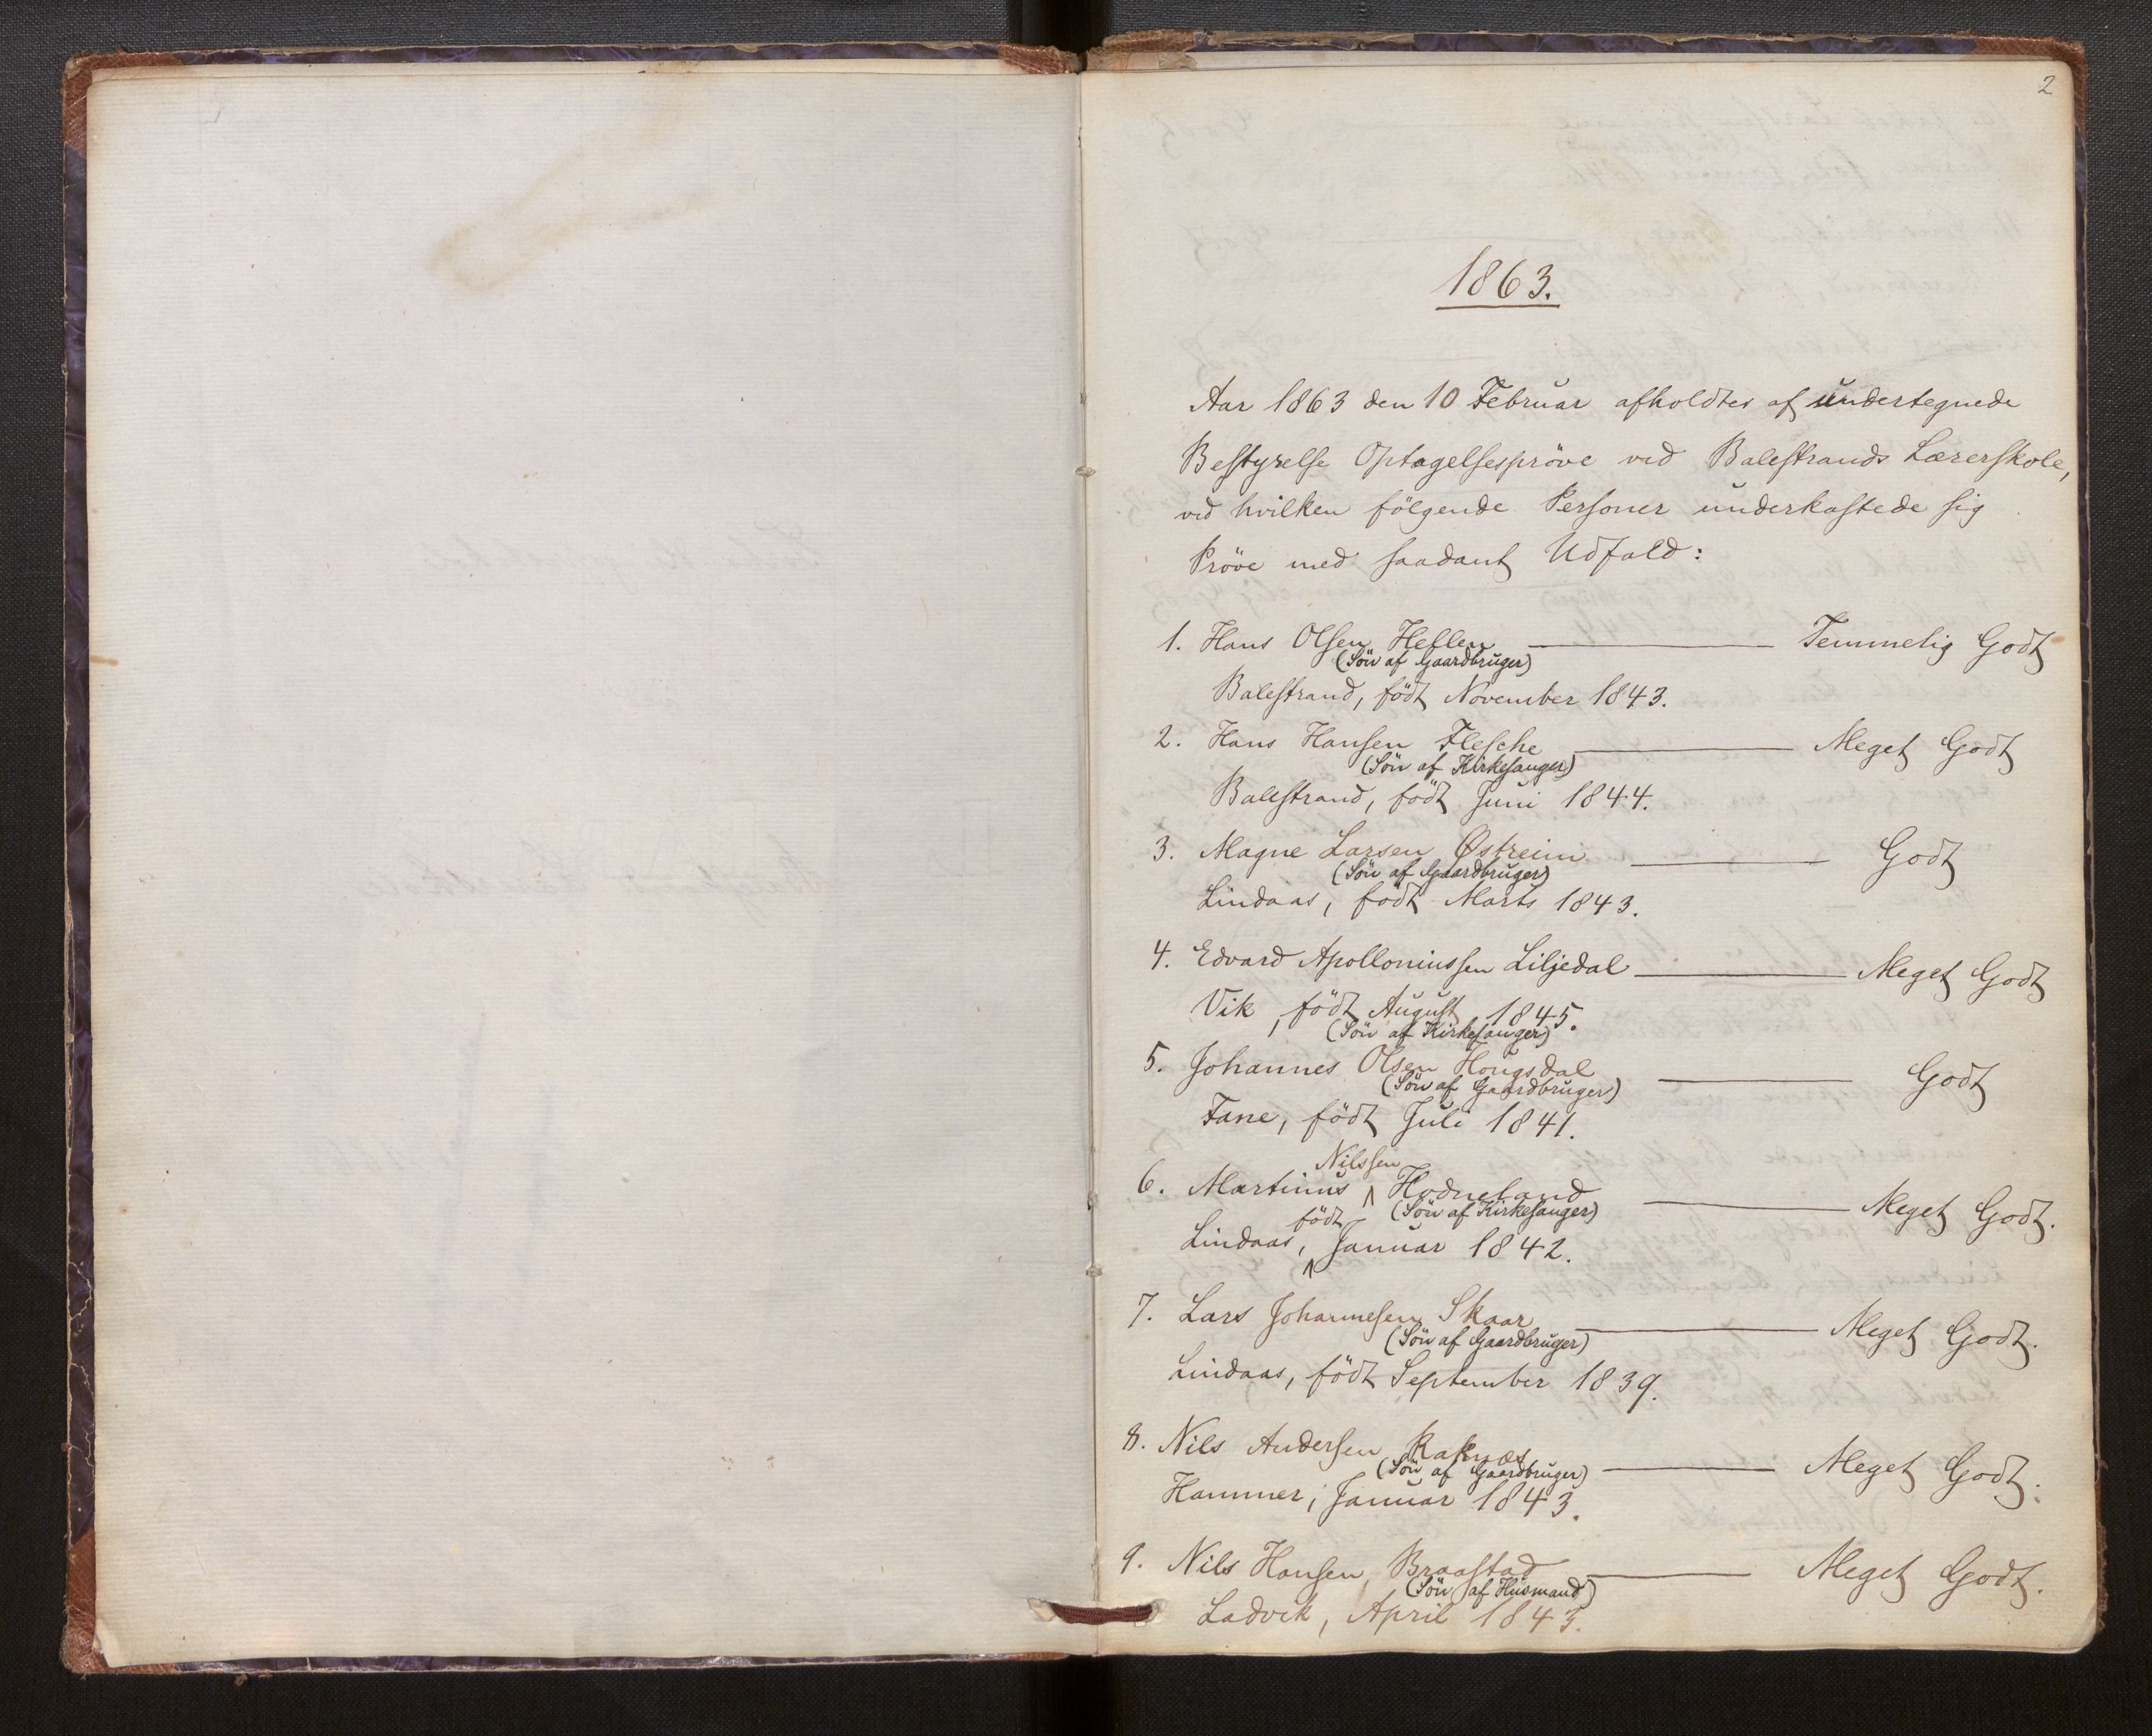 2
1863.
Aar 1863 den 10 Februar afholdtes af undertegnede
Bestyrelse Optagelsespröve ved Balestrands Lærerskole,
ved hvilken fölgende Personer underkastede sig
Pröve med saadant Udfald:
1. Hans Olsen Hellen ——— Temmelig Godt
(Sön af Gaardbruger)
Balestrand, födt November 1843.
2. Hans Hansen Flesche ——— Meget Godt
(Sön af Kirkesanger)
Balestrand, födt Juni 1844.
3. Magne Larsen Østreim ——— Godt
(Sön af Gaardbruger)
Lindaas, födt Marts 1843.
4. Edvard Apolloniussen Liljedal ——— Meget Godt
Vik, födt August 1845.
(Sön af Kirkesanger)
5. Johannes Olsen Hougsdal ——— Godt
(Sön af Gaardbruger)
Fane, födt Juli 1841.
Nilssen
6. Martinus ^ Hodneland ——— Meget Godt.
födt (Sön af Kirkesanger)
Lindaas, ^ Januar 1842.
7. Lars Johannesen Skaar ——— Meget Godt.
(Sön af Gaardbruger)
Lindaas, födt September 1839.
8. Nils Andersen Raknæs ——— Meget Godt.
(Sön af Gaardbruger)
Hammer, Januar 1843.
9. Nils Hansen Braastad ——— Meget Godt.
(Sön af Husmand)
Ladvik, April 1843.